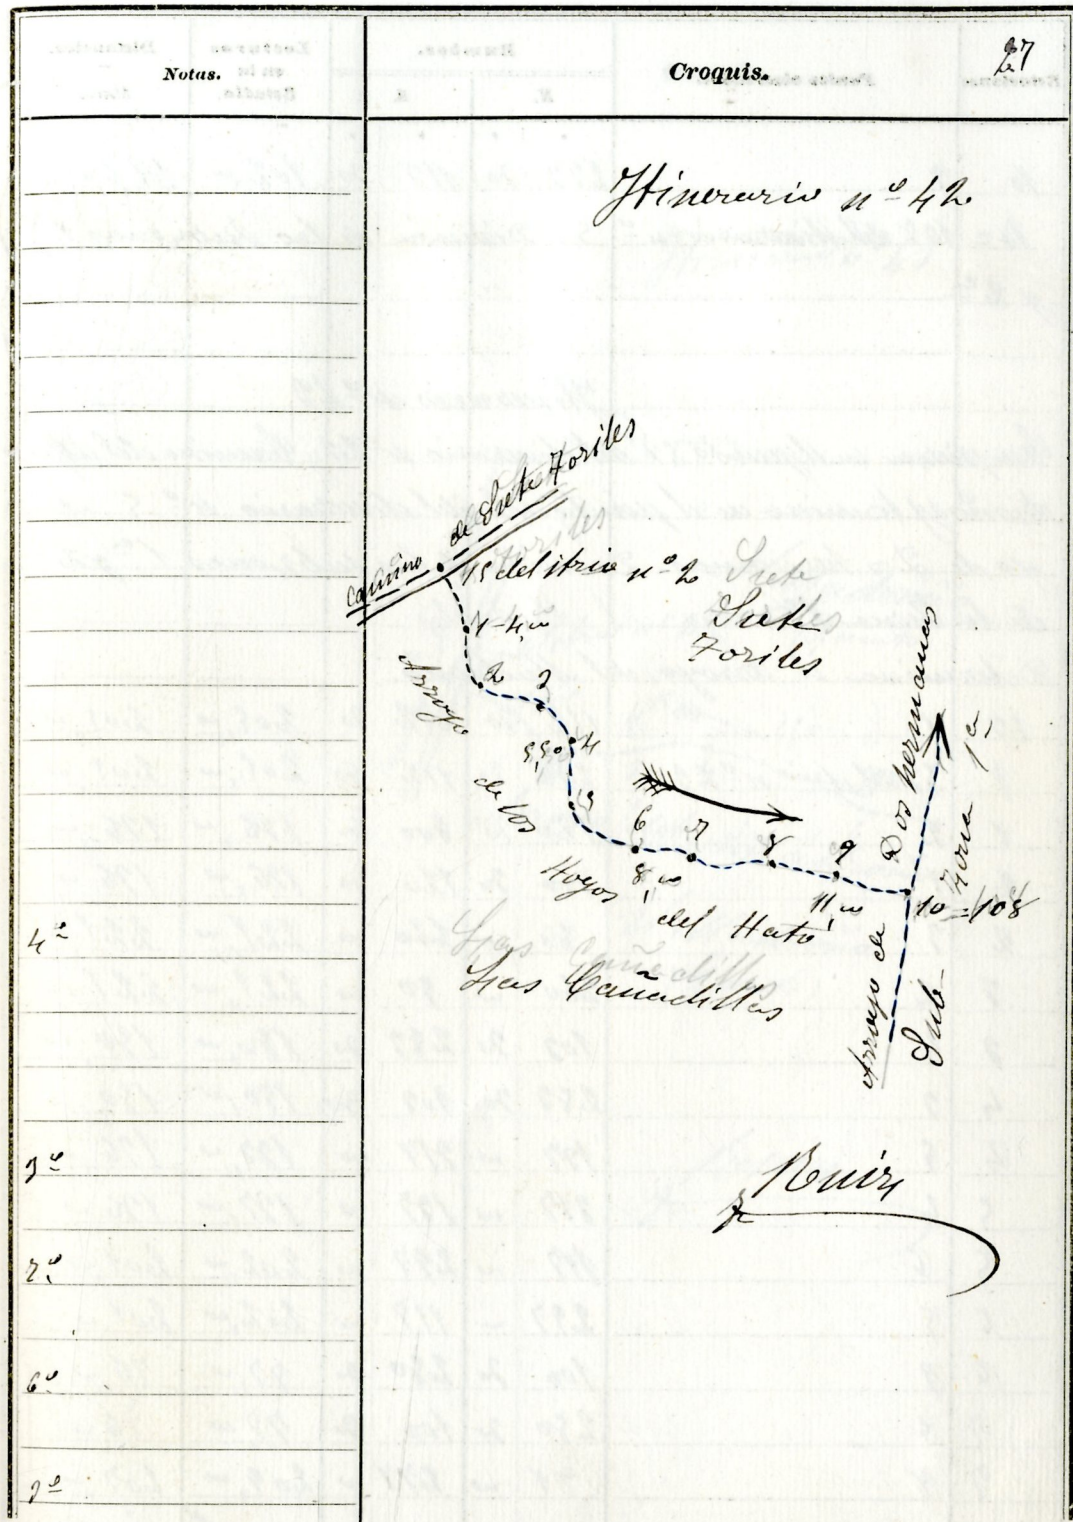 27
Notas.
Croquis.
Itinerario nº 42
Camino de Siete Toriles
15 del itrio nº 2
Siete
Toriles
1-4,00
2
3
4
5
6
8,00
7
8
9
11,00
10=108
Arroyo de los Hoyos del Hato
Las Cañadillas
Arroyo de Dos hermanas
Sub-Zona 1ª
Ruiz
4º
3º
7º
6º
3º